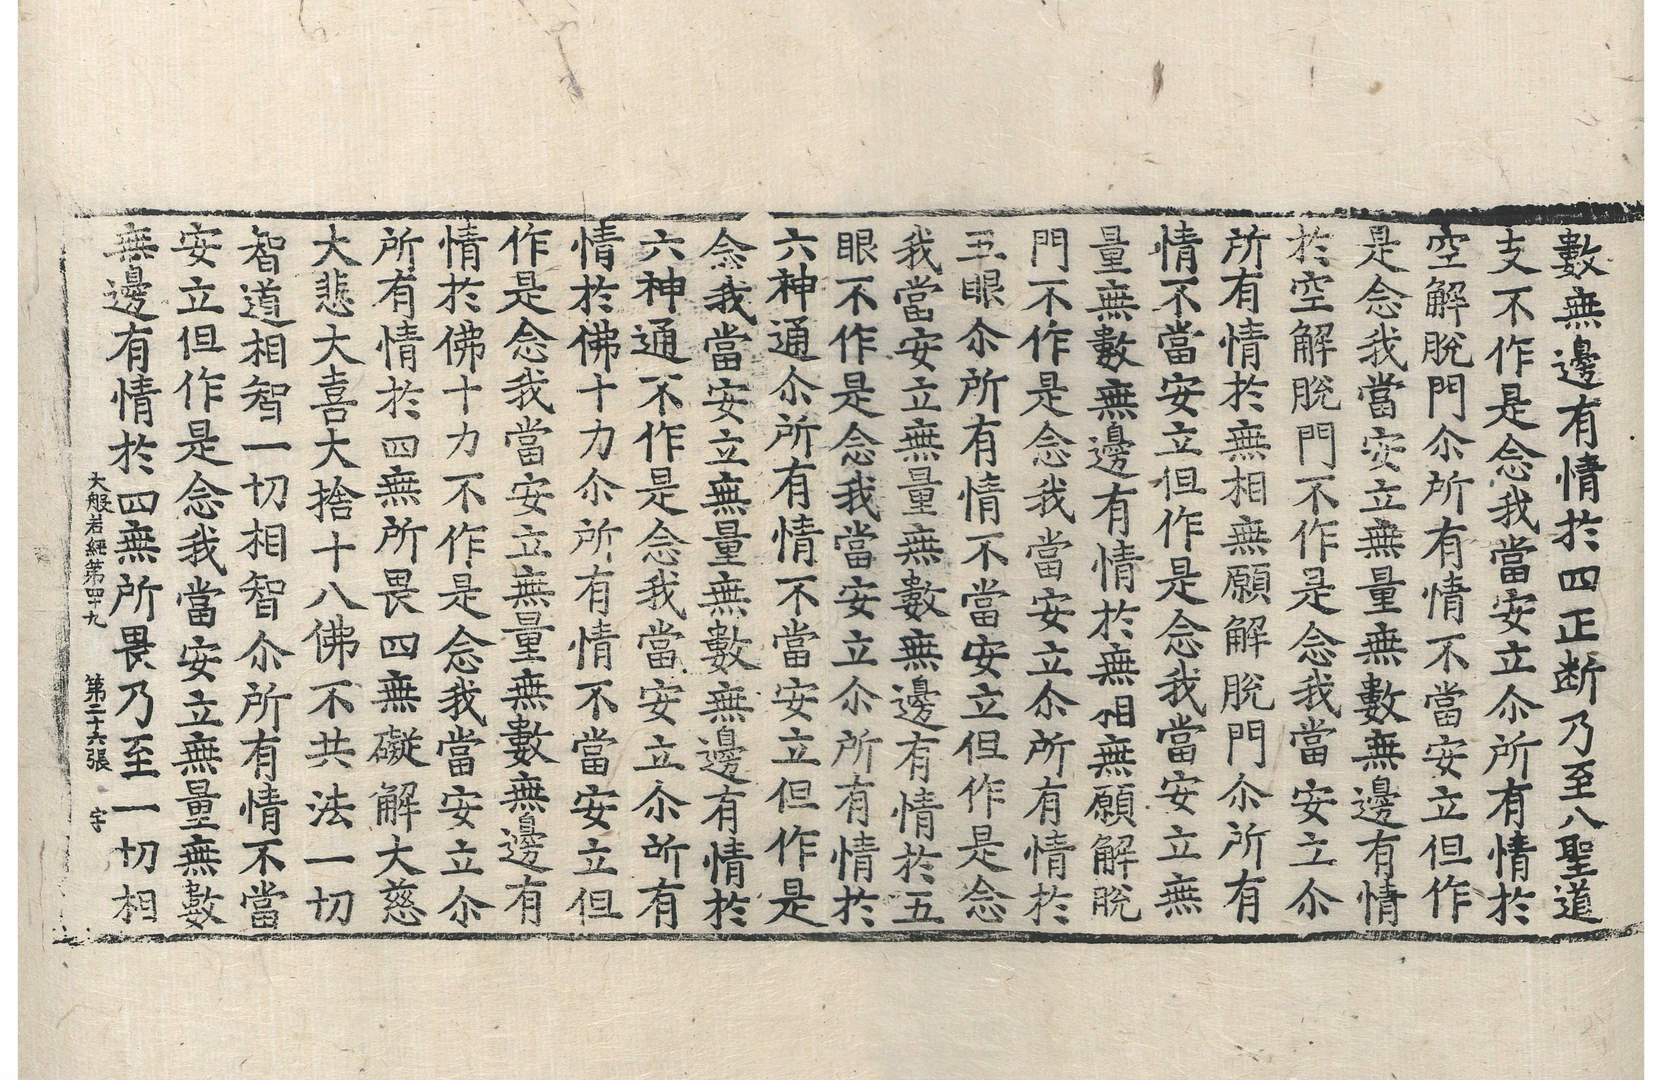 數無邊有情於四正断乃至八聖道
支不作是念我當安立尒所有情於
空解脫門尒所有情不當安立但作
是念我當安立無量無數無邊有情
於空解脫門不作是念我當安立尒
所有情於無相無願解脫門尒所有
情不當安立但作是念我當安立無
量無數無邊有情於無相無願解脫
門不作是念我當安立尒所有情於
五眼尒所有情不當安立但作是念
我當安立無量無數無邊有情於五
眼不作是念我當安立尒所有情於
六神通尒所有情不當安立但作是
念我當安立無量無數無邊有情於
六神通不作是念我當安立尒所有
情於佛十力尒所有情不當安立但
作是念我當安立無量無數無邊有
情於佛十力不作是念我當安立尒
所有情於四無所畏四無礙解大慈
大悲大喜大捨十八佛不共法一切
智道相智一切相智尒所有情不當
安立但作是念我當安立無量無數
無邊有情於四無所畏乃至一切相
大般若經第四十九 第二十六張 宇